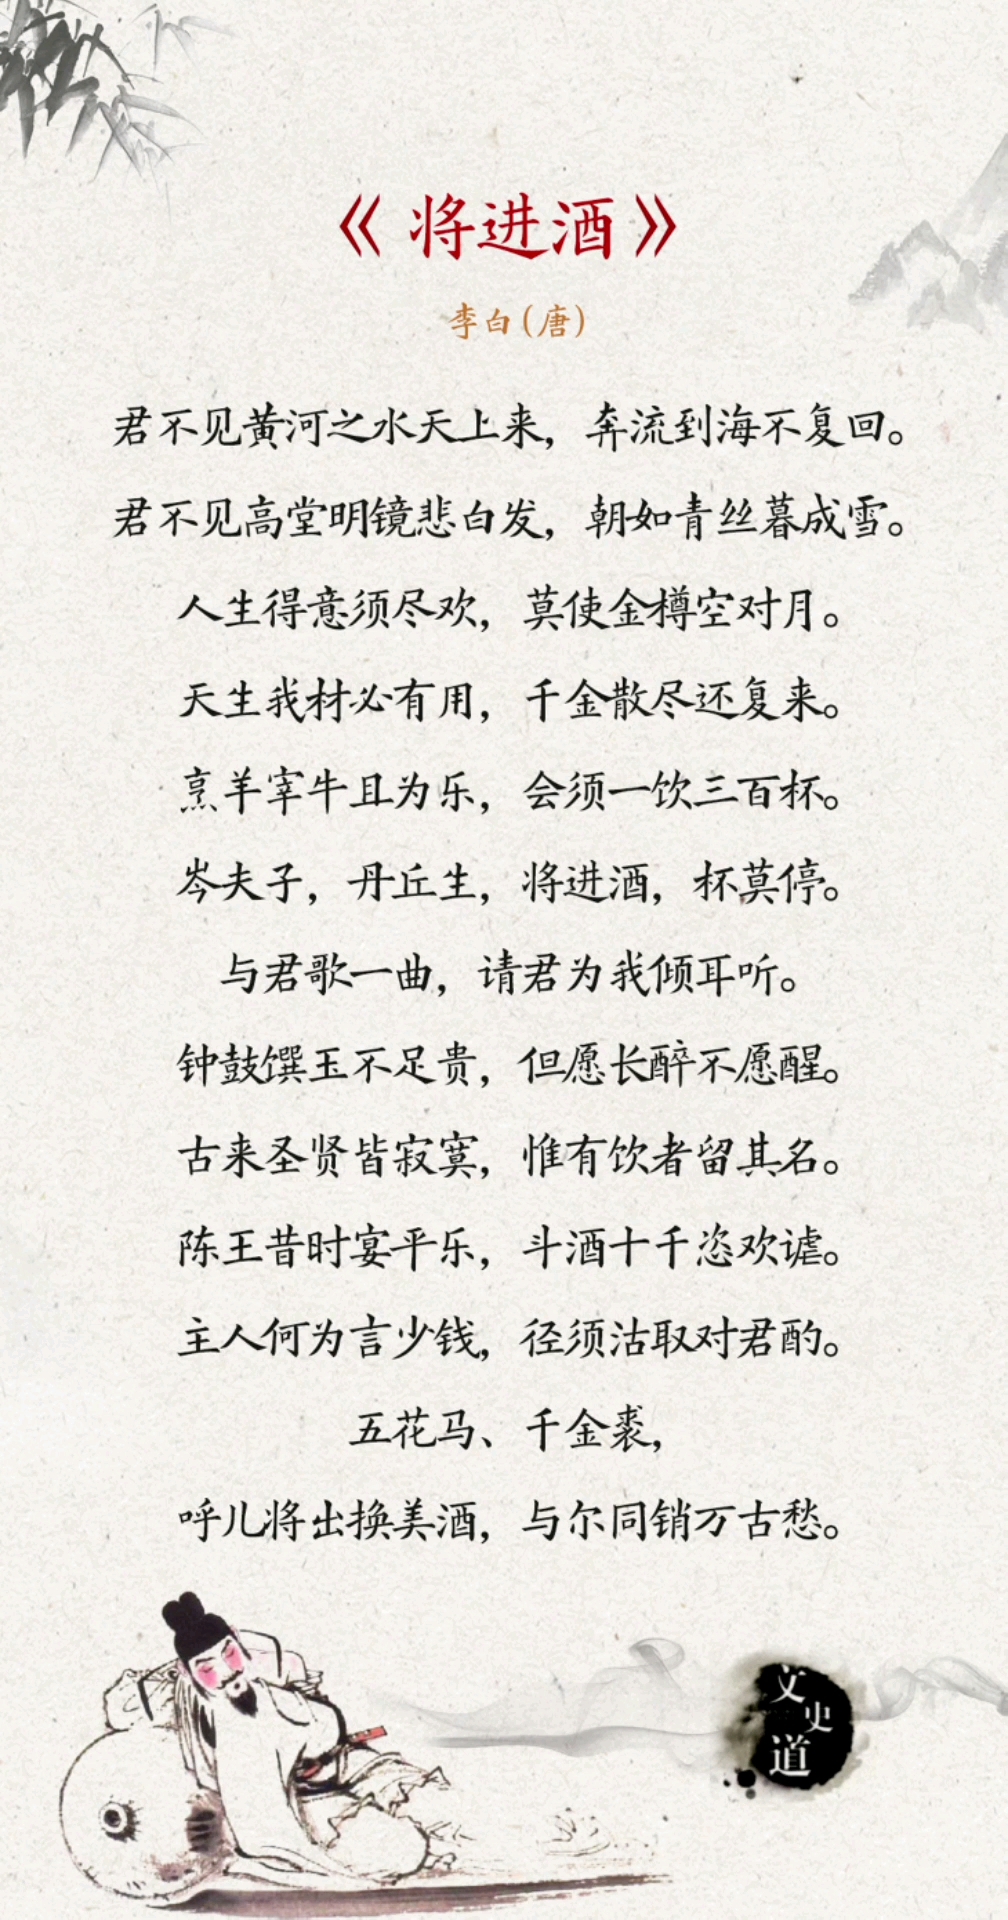 《将进酒》
李白(唐)
君不见黄河之水天上来，奔流到海不复回。
君不见高堂明镜悲白发，朝如青丝暮成雪。
人生得意须尽欢，莫使金樽空对月。
天生我材必有用，千金散尽还复来。
烹羊宰牛且为乐，会须一饮三百杯。
岑夫子，丹丘生，将进酒，杯莫停。
与君歌一曲，请君为我倾耳听。
钟鼓馔玉不足贵，但愿长醉不愿醒。
古来圣贤皆寂寞，惟有饮者留其名。
陈王昔时宴平乐，斗酒十千恣欢谑。
主人何为言少钱，径须沽取对君酌。
五花马、千金裘，
呼儿将出换美酒，与尔同销万古愁。
文史道